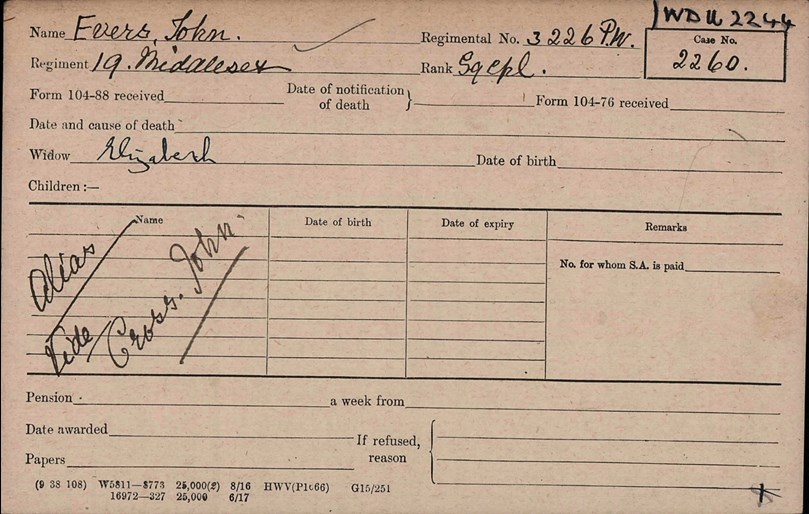 WDU 2244
Name Evers, John. Regimental No. 3226 P.W. Case No. 2260.
Regiment 19. Middlesex Rank Cpl.
Form 104-88 received Date of notification of death} Form 104-76 received
Date and cause of death
Widow Elizabeth Date of birth
Children :—
Name Date of birth Date of expiry Remarks
No. for whom S.A. is paid
Alias
Vide Cross. John.
Pension a week from
Date awarded If refused, reason {
Papers
(9 38 108) W5811—8773 25,000(2) 8/16 HWV(P1666) G15/251
16972—327 25,000 6/17